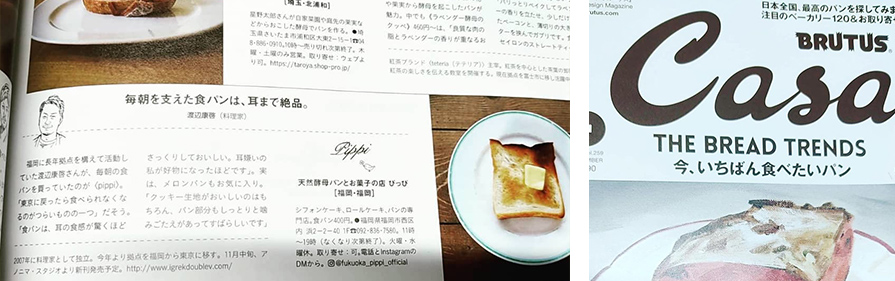 [埼玉・北浦和]
星野太郎さんが自家菜園や庭先の果実な
どからおこした酵母のパンを作る。●埼
玉県さいたま市浦和区大東2−15−1☎04
8・886・0910。10時〜売り切れ次第終了。木
曜・土曜のみ営業。取り寄せ:ウェブよ
り可。https://taroya.shop-pro.jp/
や果実から酵母を起こしたパンが
魅力。中でも〈ラベンダー酵母の
クッペ〉460円〜は、「良質な肉の
脂とラベンダーの香りが重なるお
紅茶ブランド〈teteria（テテリア）〉主宰。
毎朝を支えた食パンは、耳まで絶品。
渡辺康啓（料理家）
福岡に長年拠点を構えて活動し
ていた渡辺康啓さんが、毎朝の食
パンを買っていたのが〈pippi〉。
「東京に戻ったら食べられなくな
るのがつらいものの一つ」だそう。
「食パンは、耳の食感が驚くほど
さっくりしておいしい。耳嫌いの
私が好物になったほどです」。実
は、メロンパンもお気に入り。
「クッキー生地がおいしいのはも
ちろん、パン部分もしっとりと噛
みごたえがあってすばらしいです」
2007年に料理家として独立。今年より拠点を福岡から東京に移す。11月中旬、ア
ノニマ・スタジオより新刊発売予定。http://www.igrekdoublev.com/
Pippi
天然酵母パンとお菓子の店 ぴっぴ
[福岡・福岡]
シフォンケーキ、ロールケーキ、パンの専
門店。食パン400円。●福岡県福岡市西区
内浜2−2−40 1F☎092・836・7560。11時
〜19時（なくなり次第終了）。火曜・水
曜休。取り寄せ:可。電話とInstagramの
DMから。@fukuoka_pippi_official
Design Magazine
brutus.com
日本全国、最高のパンを探してみま
注目のベーカリー120&お取り寄
BRUTUS
Casa
THE BREAD TRENDS
今、いちばん食べたいパン